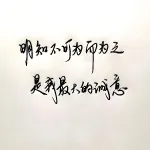 明知不可为而为之
是我最大的诚意